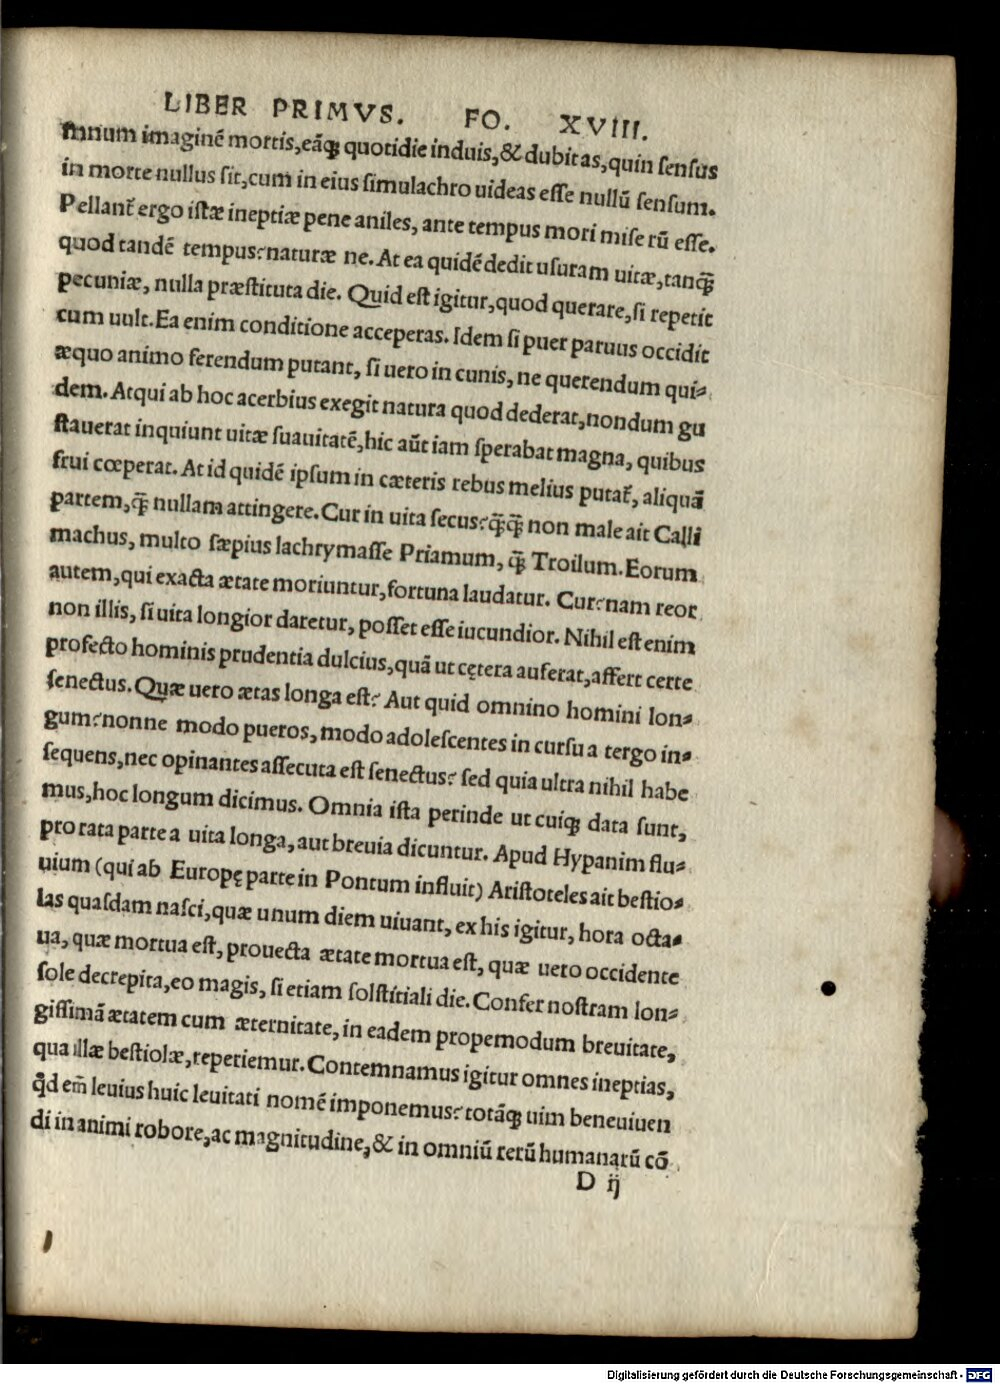 LIBER PRIMVS. FO. XVIII.
ſmnum imaginē mortis,eāꝗ quotidie induis,& dubitas,quin ſenſus
in morte nullus ſit,cum in eius ſimulachro uideas eſſe nullū ſenſum.
Pellant̄ ergo iſtæ ineptiæ pene aniles, ante tempus mori miſerū eſſe.
quod tandē tempus?naturæ ne. At ea quidē dedit uſuram uitæ,tanq̄
pecuniæ, nulla præſtituta die. Quid eſt igitur,quod querare,ſi repetit
cum uult.Ea enim conditione acceperas. Idem ſi puer paruus occidit
æquo animo ferendum putant, ſi uero in cunis, ne querendum qui⸗
dem. Atqui ab hoc acerbius exegit natura quod dederat,nondum gu
ſtauerat inquiunt uitæ ſuauitatē,hic aūt iam ſperabat magna, quibus
frui cœperat. At id quidē ipſum in cæteris rebus melius putat̄, aliquā
partem,q̄ nullam attingere. Cur in uita ſecus?q̄q̄ non male ait Calli
machus, multo ſæpius lachrymaſſe Priamum, q̄ Troilum. Eorum
autem,qui exacta ætate moriuntur,fortuna laudatur. Cur?nam reor
non illis, ſi uita longior daretur, poſſet eſſe iucundior. Nihil eſt enim
profecto hominis prudentia dulcius,quā ut cętera auferat,affert certe
ſenectus. Quæ uero ætas longa eſt? Aut quid omnino homini lon⸗
gum?nonne modo pueros, modo adoleſcentes in curſu a tergo in⸗
ſequens,nec opinantes aſſecuta eſt ſenectus? ſed quia ultra nihil habe
mus,hoc longum dicimus. Omnia iſta perinde ut cuiꝗ data ſunt,
pro rata parte a uita longa, aut breuia dicuntur. Apud Hypanim flu⸗
uium (qui ab Europę parte in Pontum influit) Ariſtoteles ait beſtio⸗
las quaſdam naſci,quæ unum diem uiuant, ex his igitur, hora octa⸗
ua, quæ mortua eſt, prouecta ætate mortua eſt, quæ uero occidente
ſole decrepita,eo magis, ſi etiam ſolſtitiali die. Confer noſtram lon⸗
giſſimā ætatem cum æternitate, in eadem propemodum breuitate,
qua illæ beſtiolæ,reperiemur. Contemnamus igitur omnes ineptias,
qd em̄ leuius huic leuitati nomē imponemus? totāꝗ uim bene uiuen
di in animi robore,ac magnitudine,& in omniū rerū humanarū cō
D ij
Digitalisierung gefördert durch die Deutsche Forschungsgemeinschaft - DFG